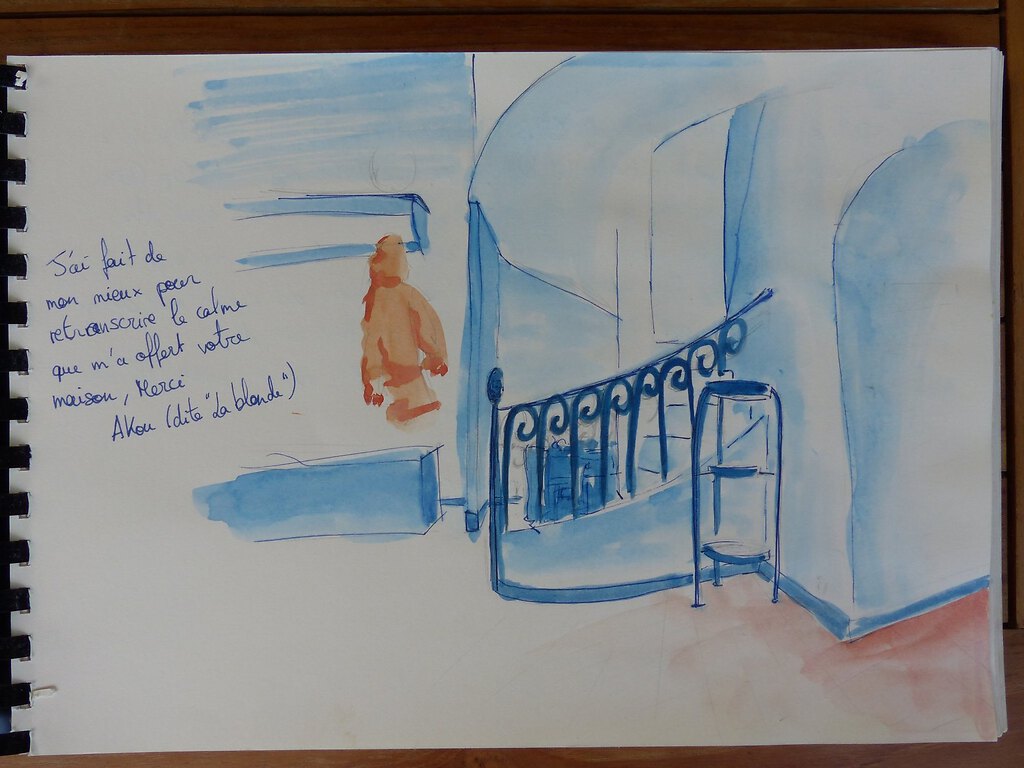 J'ai fait de
mon mieux pour
retranscrire le calme
que m'a offert votre
maison, Merci
Akou (dite "La blonde")